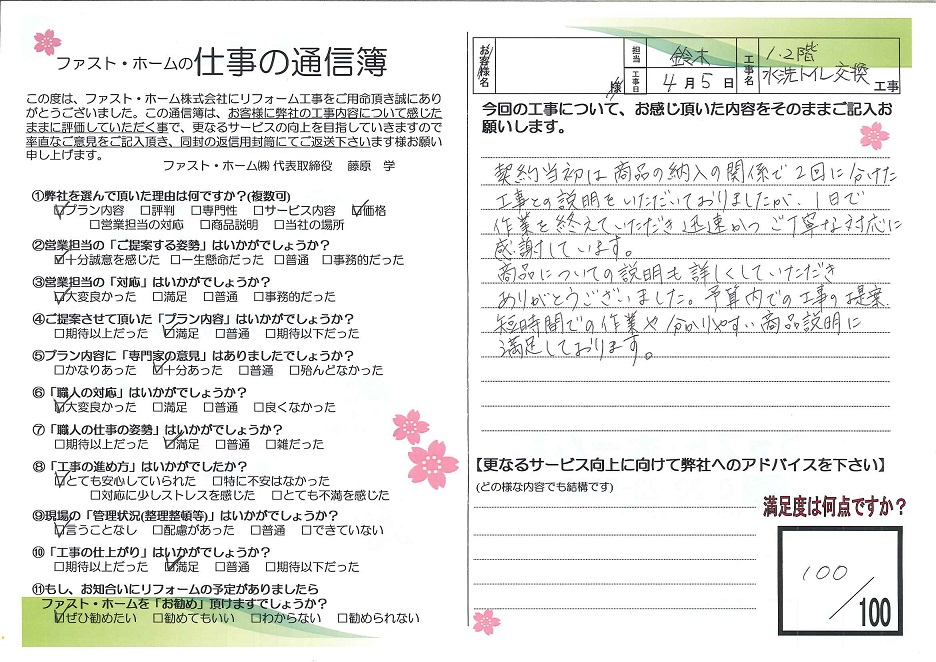 ファスト・ホームの仕事の通信簿
この度は、ファスト・ホーム株式会社にリフォーム工事をご用命頂き誠にあり
がとうございました。この通信簿は、お客様に弊社の工事内容について感じた
ままに評価していただく事で、更なるサービスの向上を目指していきますので
率直なご意見をご記入頂き、同封の返信用封筒にてご返送下さいます様お願い
申し上げます。
ファスト・ホーム㈱ 代表取締役 藤原 学
①弊社を選んで頂いた理由は何ですか?(複数可)
☑プラン内容 □評判 □専門性 □サービス内容 ☑価格
□営業担当の対応 □商品説明 □当社の場所
②営業担当の「ご提案する姿勢」はいかがでしょうか?
☑十分誠意を感じた □一生懸命だった □普通 □事務的だった
③営業担当の「対応」はいかがでしょうか?
☑大変良かった □満足 □普通 □事務的だった
④ご提案させて頂いた「プラン内容」はいかがでしょうか?
□期待以上だった ☑満足 □普通 □期待以下だった
⑤プラン内容に「専門家の意見」はありましたでしょうか?
□かなりあった ☑十分あった □普通 □殆んどなかった
⑥「職人の対応」はいかがでしょうか?
☑大変良かった □満足 □普通 □良くなかった
⑦「職人の仕事の姿勢」はいかがでしょうか?
□期待以上だった ☑満足 □普通 □雑だった
⑧「工事の進め方」はいかがでしたか?
☑とても安心していられた □特に不安はなかった
□対応に少しストレスを感じた □とても不満を感じた
⑨現場の「管理状況(整理整頓等)」はいかがでしょうか?
☑言うことなし □配慮があった □普通 □できていない
⑩「工事の仕上がり」はいかがでしょうか?
□期待以上だった ☑満足 □普通 □期待以下だった
⑪もし、お知合いにリフォームの予定がありましたら
ファスト・ホームを「お勧め」頂けますでしょうか?
☑ぜひ勧めたい □勧めてもいい □わからない □勧められない
お客様名 様 担当 鈴木 工事日 4月5日 工事名 1・2階
水洗トイレ交換 工事
今回の工事について、お感じ頂いた内容をそのままご記入お
願いします。
契約当初は商品の納入の関係で2回に分けた
工事との説明をいただいておりましたが、1日で
作業を終えていただき迅速かつご丁寧な対応に
感謝しています。
商品についての説明も詳しくしていただき
ありがとうございました。予算内での工事の提案、
短時間での作業や分かりやすい商品説明に
満足しております。
【更なるサービス向上に向けて弊社へのアドバイスを下さい】
(どの様な内容でも結構です)
満足度は何点ですか?
100/100